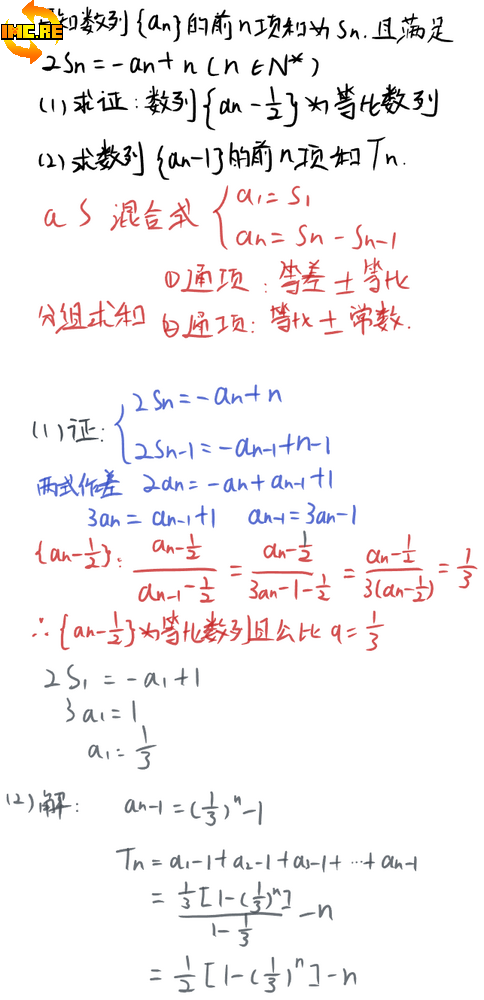 IMG.RE
已知数列{an}的前n项和为Sn.且满足
2Sn=-an+n(n∈N*)
(1)求证:数列{an-1/2}为等比数列
(2)求数列{an-1}的前n项和Tn.
a S 混合式 { a1=S1
an=Sn-Sn-1
①通项:等差±等比
分组求和 ②通项:等比±常数.
(1)证: { 2Sn=-an+n
2Sn-1=-an-1+n-1
两式作差 2an=-an+an-1+1
3an=an-1+1 an-1=3an-1
{an-1/2}: (an-1/2)/(an-1-1/2)=(an-1/2)/(3an-1-1/2)=(an-1/2)/3(an-1/2)=1/3
∴{an-1/2}为等比数列且公比q=1/3
2S1=-a1+1
3a1=1
a1=1/3
(2)解: an-1=(1/3)^n-1
Tn=a1-1+a2-1+a3-1+…+an-1
=1/3[1-(1/3)^n]/(1-1/3)-n
=1/2[1-(1/3)^n]-n